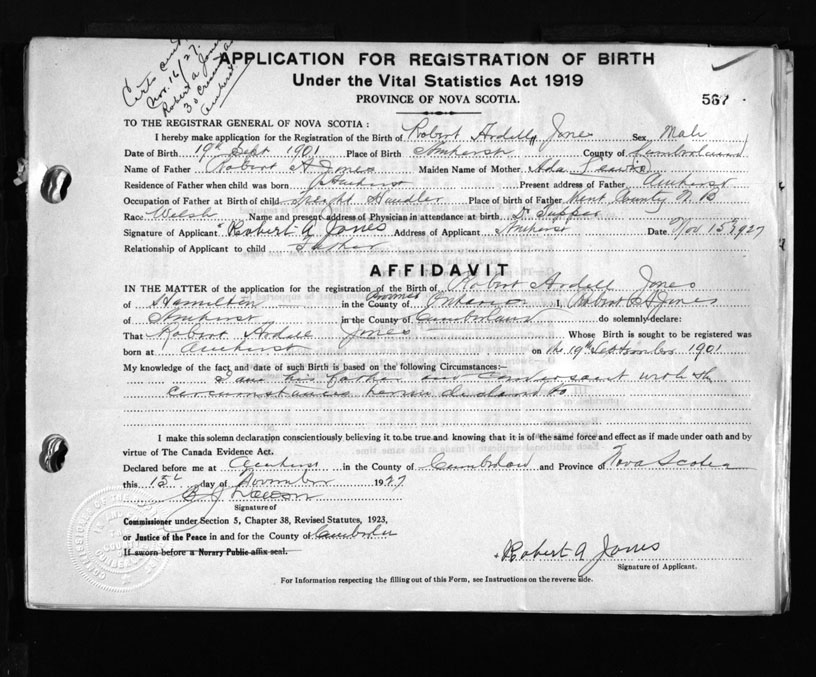 Certs
Nov. 16/27.
Robert A Jones
30
Amherst
APPLICATION FOR REGISTRATION OF BIRTH
Under the Vital Statistics Act 1919
PROVINCE OF NOVA SCOTIA.
567
TO THE REGISTRAR GENERAL OF NOVA SCOTIA :
I hereby make application for the Registration of the Birth of Robert Ardell Jones Sex Male
Date of Birth 19th Sept 1901 Place of Birth Amherst County of Cumberland
Name of Father Robert A Jones Maiden Name of Mother Ada
Residence of Father when child was born Amherst Present address of Father Amherst
Occupation of Father at Birth of child Freight Handler Place of birth of Father Kent County N B
Race Welsh Name and present address of Physician in attendance at birth Dr Tupper
Signature of Applicant Robert A Jones Address of Applicant Amherst Date Nov 15th 1927
Relationship of Applicant to child Father
AFFIDAVIT
IN THE MATTER of the application for the registration of the Birth of Robert Ardell Jones
of Hamilton in the Province County of Ontario I, Robert A Jones
of Amherst in the County of Cumberland do solemnly declare:
That Robert Ardell Jones Whose Birth is sought to be registered was
born at Amherst on the 19th September 1901
My knowledge of the fact and date of such Birth is based on the following Circumstances:—
I am his father and conversant with the
circumstances herein declared to
I make this solemn declaration conscientiously believing it to be true and knowing that it is of the same force and effect as if made under oath and by
virtue of The Canada Evidence Act.
Declared before me at Amherst in the County of Cumberland and Province of Nova Scotia
this 15th day of November 1927
Signature of
Commissioner under Section 5, Chapter 38, Revised Statutes, 1923,
or Justice of the Peace in and for the County of Cumberland
If sworn before a Norary Public affix seal.
Robert A Jones
Signature of Applicant.
For Information respecting the filling out of this Form, see Instructions on the reverse side.